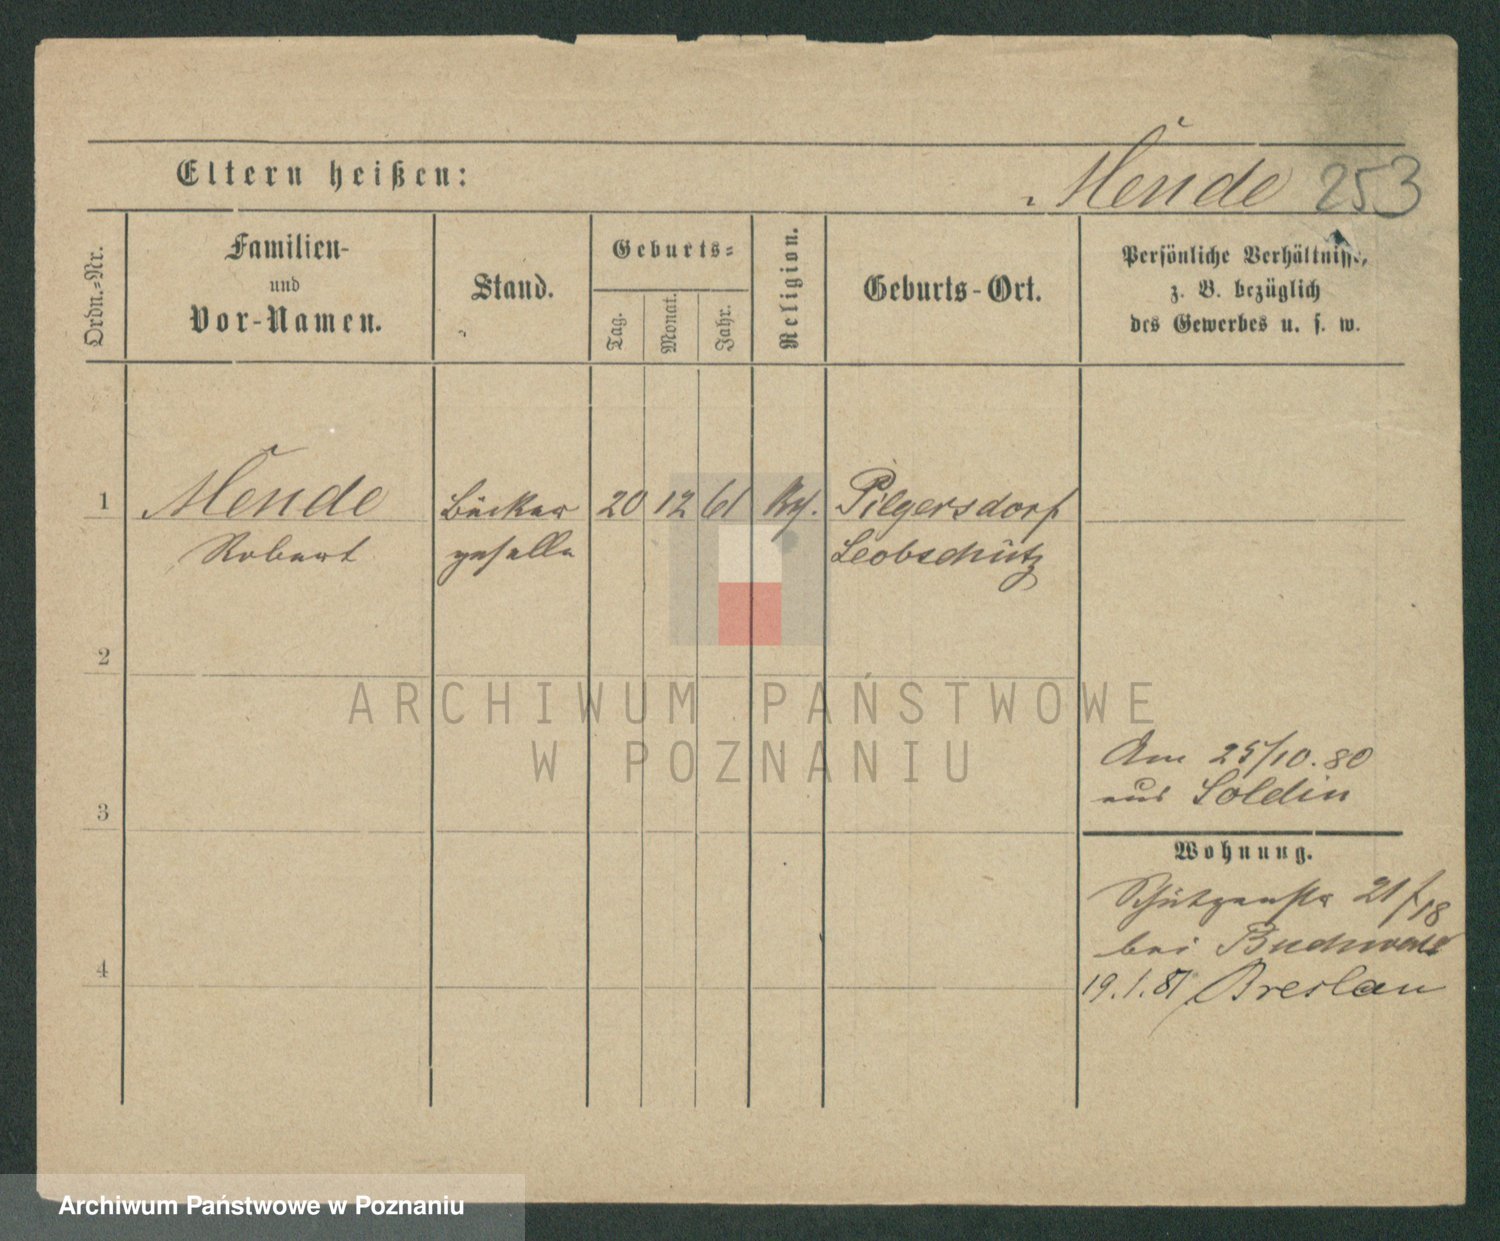 Eltern heißen:
Mende 253
Ordn.-Nr.
Familien-
und
Vor-Namen.
Stand.
Geburts-
Tag.
Monat.
Jahr.
Religion.
Geburts-Ort.
Persönliche Verhältnisse,
z. B. bezüglich
des Gewerbes u. s. w.
1 Mende Bäcker 20 12 61 Pilgersdorf
Robert geselle Leobschütz
2
ARCHIWUM PAŃSTWOWE
W POZNANIU
Am 25/10. 80
aus Soldin
3
Wohnung.
Schützenstr 21 f/18
bei Buchwald
4
19.1.81 Breslau
Archiwum Państwowe w Poznaniu